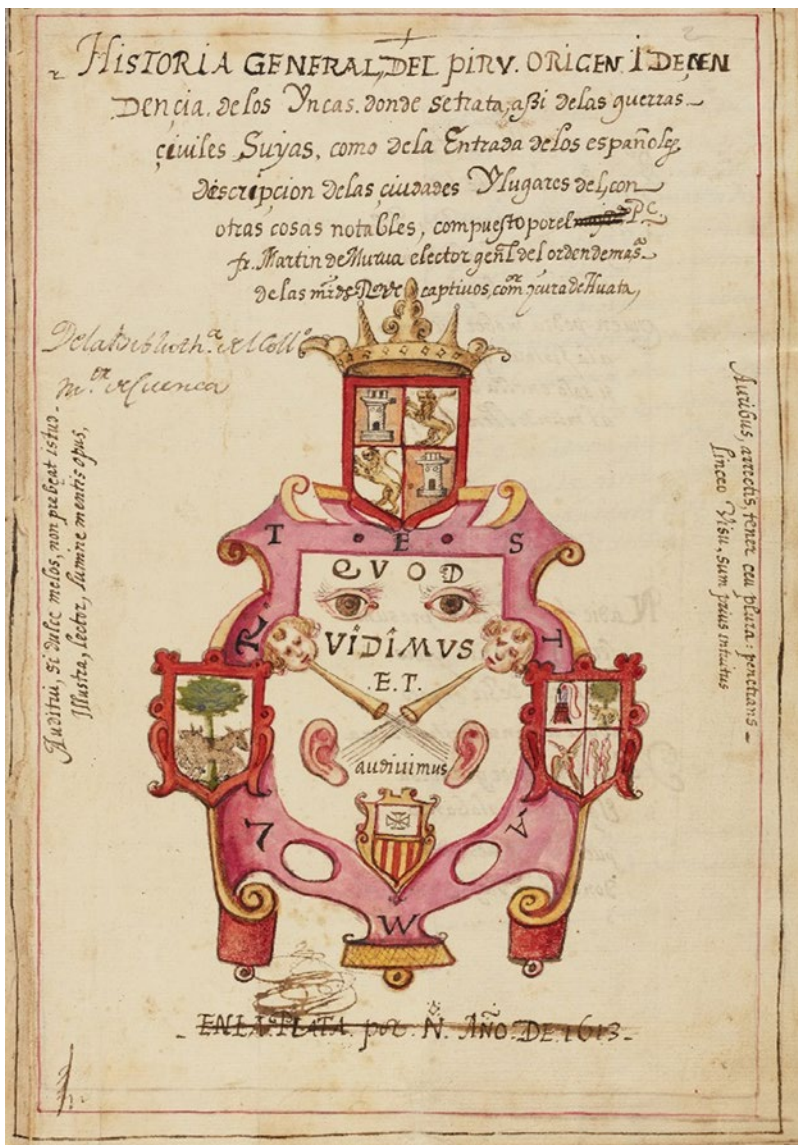 HISTORIA GENERAL DEL PIRV. ORIGEN I DEÇEN
Dençia. de los Yncas. donde se trata, aßi de las guerras
çiviles Suyas, como de la Entrada de los españoles,
descripcion de las çiudades Y lugares del, con
otras cosas notables, compuesto por el P.e
fr. Martin de Murua elector gen.l del orden de
de las captiuos, y cura de Huata,
De la Biblioth.ca del Coll.o
m.or de Cuenca
Auditui, si dulce melos, non præbeat istud.
Illustra, lector, lumine mentis opus,
Auribus, arrectis, tener ceu plura: penetrans
Linceo Visu, sum prius intuitus
T E S
QVOD
R T
VIDIMVS
.E.T.
audiuimus
7 A
W
EN LA PLATA. por. N. AÑO. DE 1613.